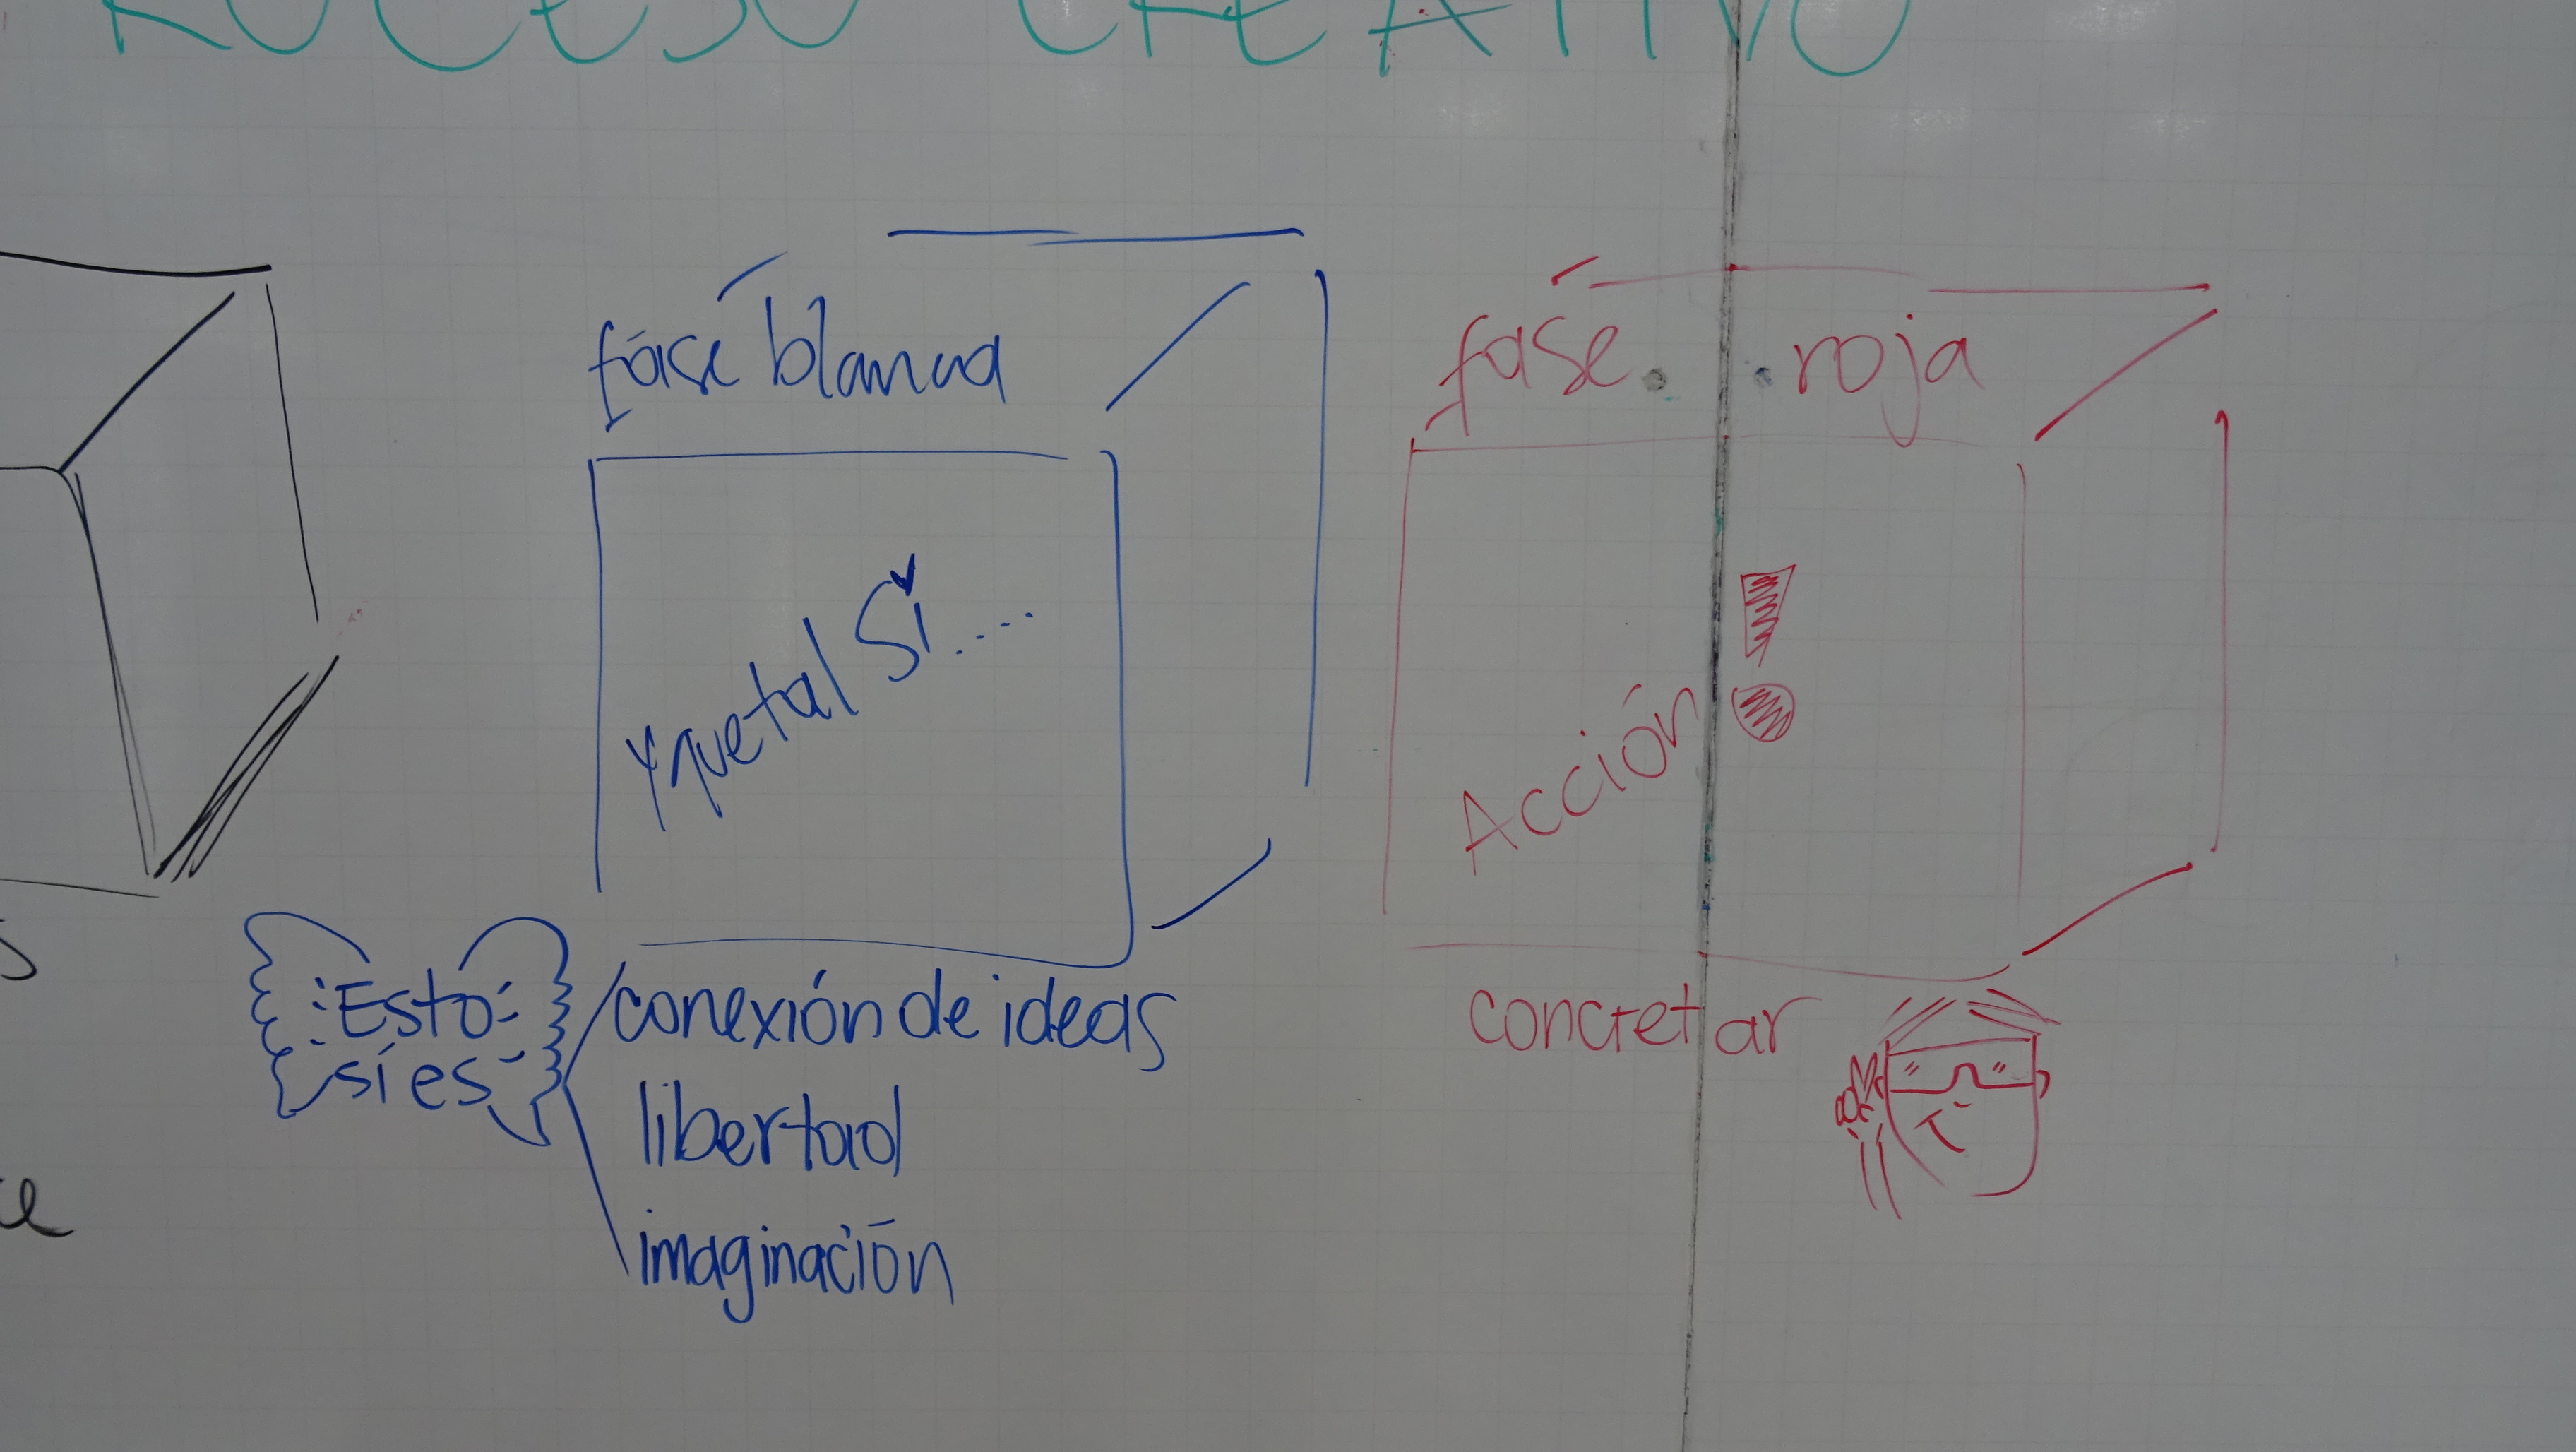 ROCESO CREATIVO
fase blanca
Y que tal Sí....
Esto
sí es
conexión de ideas
libertad
imaginación
fase roja
Acción!
concretar